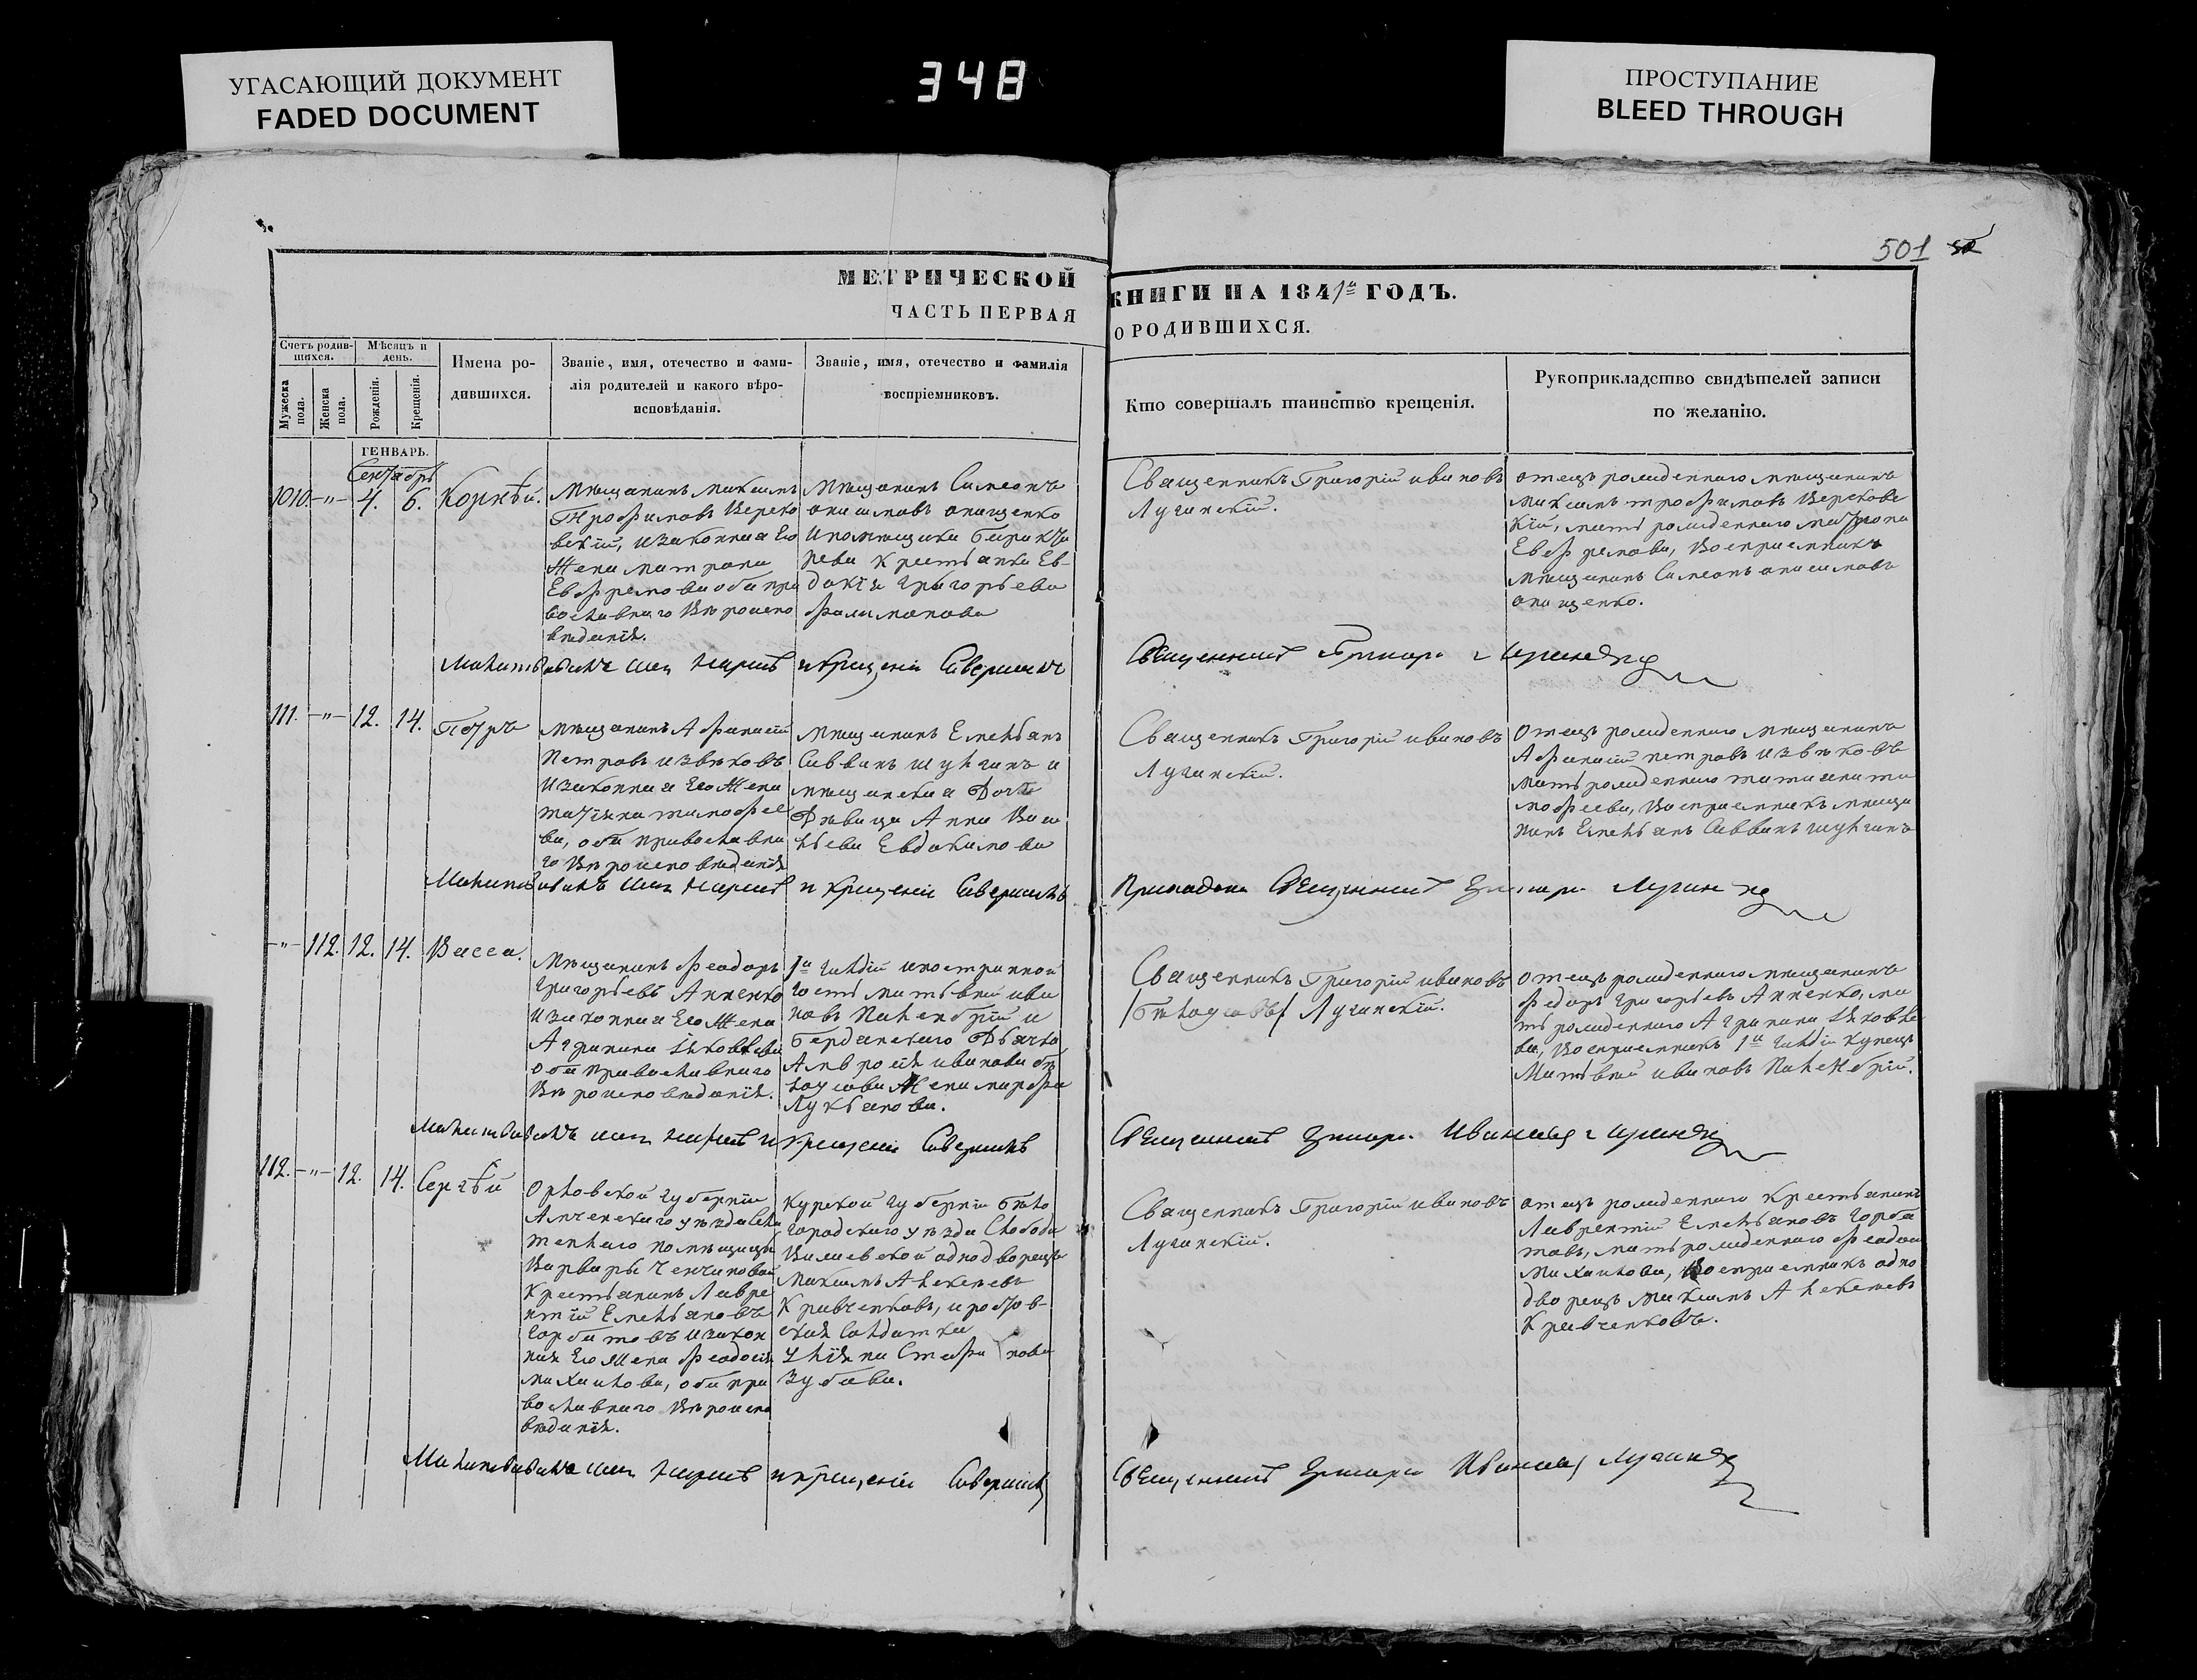 УГАСАЮЩИЙ ДОКУМЕНТ
FADED DOCUMENT
348
ПРОСТУПАНИЕ
BLEED THROUGH
501
МЕТРИЧЕСКОЙ
ЧАСТЬ ПЕРВАЯ
КНИГИ НА 1841й ГОДЪ.
О РОДИВШИХСЯ.
Счетъ родив-
шихся.
Мужеска
пола.
Женска
пола.
Мѣсяцъ и
день.
Рожденія.
Крещенія.
Имена ро-
дившихся.
Званіе, имя, отечество и фами-
лія родителей и какого вѣро-
исповѣданія.
Званіе, имя, отечество и фамилія
воспріемниковъ.
Кто совершалъ таинство крещенія.
Рукоприкладство свидѣтелей записи
по желанію.
ГЕНВАРЬ.
Сентябрь
1010. -"- 4. 6. Корнѣй.
Мѣщанинъ Максимъ
Трофимовъ Верехо
вскій, и законная Его
Жена Матрона
Евфремова оба пра
вославнаго Вѣроиспо
вѣданія.
Мѣщанинъ Симеонъ
Анисимовъ Онищенко
и помѣщика
Крестьянка Ев-
докія Григорьева
Филимонова
Священникъ Григорій Ивановъ
Лучинскій.
отецъ рожденнаго мѣщанинъ
Максимъ Трофимовъ Верехове
кій, мать рожденнаго Матрона
Евфремова, Восприемникъ
мѣщанинъ Симеонъ Анисимовъ
Онищенко.
Молитвовалъ имя нарекъ и крещеніе Совершилъ
Священникъ Григорій Лучинскій
111. -"- 12. 14. Петръ
мѣщанинъ Афанасій
Петровъ Извѣковъ
и законная Его Жена
Татіяна Тимофее
ва, оба православна
го Вѣроисповѣданія
мѣщанинъ Емельянъ
Саввинъ Шульгинъ и
мѣщанская Дочь
Дѣвица Анна Васи
льева Евдокимова
Священникъ Григорій Ивановъ
Лучинскій.
отецъ рожденнаго мѣщанинъ
Афанасій Петровъ Извѣковъ
мать рожденнаго Татиана Ти
мофеева, Восприемникъ мѣща
нинъ Емельянъ Саввинъ Шульгинъ
Молитвовалъ имя нарекъ и крещеніе Совершилъ
Священникъ Григорій Лучинскій
-"- 112. 12. 14. Васса.
Мѣщанинъ Феодоръ
Григорьевъ Анненко
и законная Его Жена
Агрипина Яковлева
оба православнаго
Вѣроисповѣданія.
1й Гильдіи иностранной
гость Матвѣй Ива
новъ
Бердянскаго Дьячка
Амвросія Иванова Бѣ
лоусова Жена Марфа
Лукьянова.
Священникъ Григорій Ивановъ
/Бѣлоусовъ/ Лучинскій.
отецъ рожденнаго мѣщанинъ
Федоръ Григорьевъ Анненко, ма
ть рожденнаго Агрипина Яковле
ва, Восприемникъ 1й Гильдіи купецъ
Матвѣй Ивановъ
Молитвовалъ имя нарекъ и крещеніе Совершилъ
Священникъ Григорій Ивановъ Лучинскій
112. -"- 12. 14. Сергѣй
Орловской губерніи
уѣзда
помѣщицы
Варвары
Крестьянинъ Лавре
нтій Емельяновъ
Горбатовъ и закон
ная Его Жена Феодосія
Михаилова, оба пра
вославнаго Вѣроиспо
вѣданія.
Курской губерніи Бѣло
городскаго уѣзда Слободы
однодворецъ
Максимъ Алексѣевъ
Кравченковъ, и ростов-
ская Солдатка
Уліяна Стефанова
Зубова.
Священникъ Григорій Ивановъ
Лучинскій.
отецъ рожденнаго Крестьянинъ
Лаврентій Емельяновъ Горба
товъ, мать рожденнаго Феодосія
Михаилова, Восприемникъ одно
дворецъ Максимъ Алексѣевъ
Кравченковъ.
Молитвовалъ имя нарекъ и крещеніе Совершилъ
Священникъ Григорій Ивановъ Лучинскій